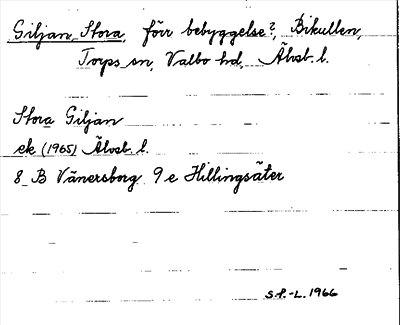 Giljan, Stora, förr bebyggelse?, Bikullen,
Torps sn, Valbo hd, Älvsb. l.
Stora Giljan
ek (1965) Älvsb. l.
8 B Vänersborg 9 e Hillingsäter
S.F.-L. 1966